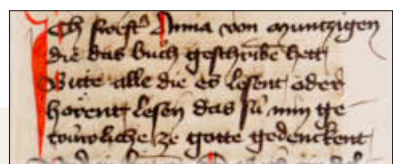 Ich swest͛ Anna von muntzigen
die das buch geschribē hett
Bitte alle die es lesent oder
hoͤrent lesen das sú min ge-
toͤwliche ze gotte gedenckent